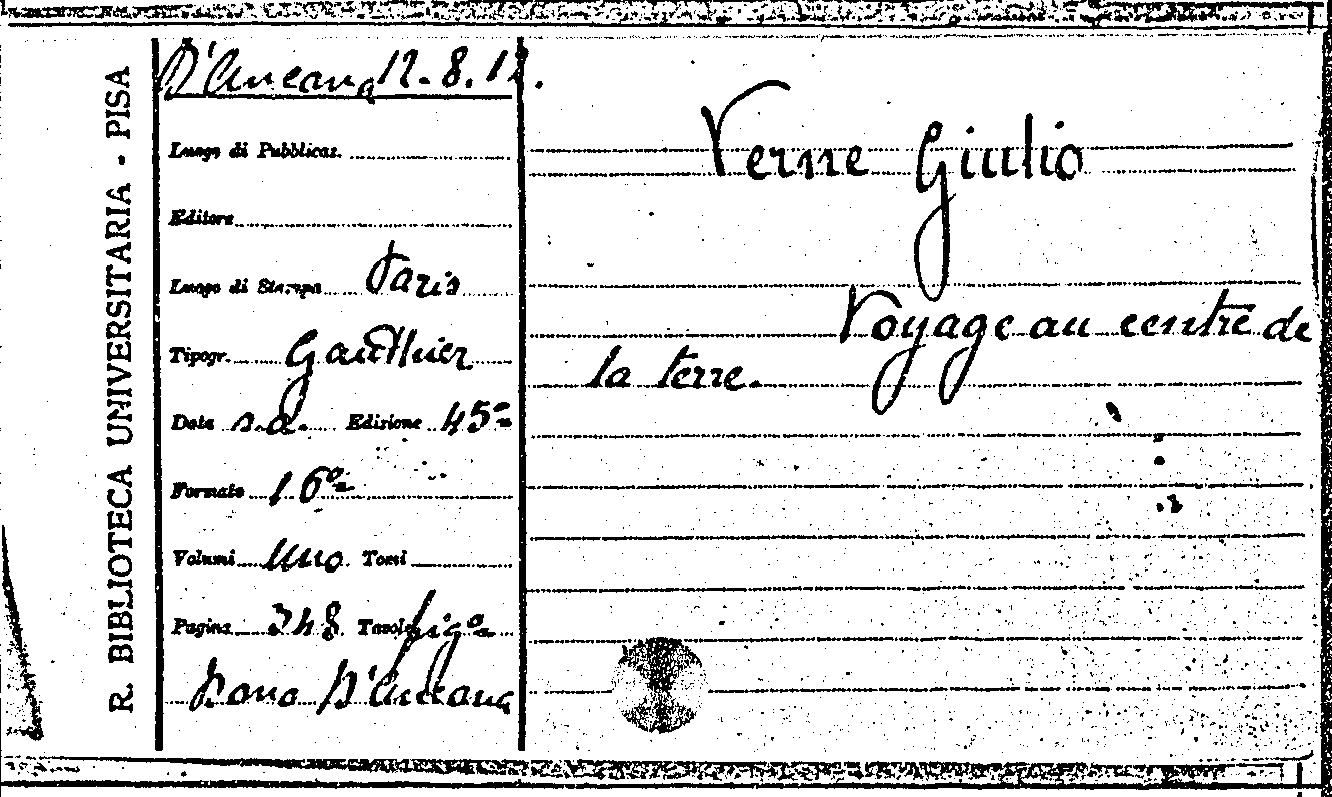 R. BIBLIOTECA UNIVERSITARIA - PISA
D'Ancona 12. 8. 12.
Luogo di Pubblicaz.
Editore
Luogo di Stampa Paris
Tipogr. Gauthier
Data s.a. Edizione 45ª
Formato 16º
Volumi Uno Tomi
Pagine 348 Tavole figº
Dono D'Ancona
Verne Giulio
Voyage au centre de
la terre.